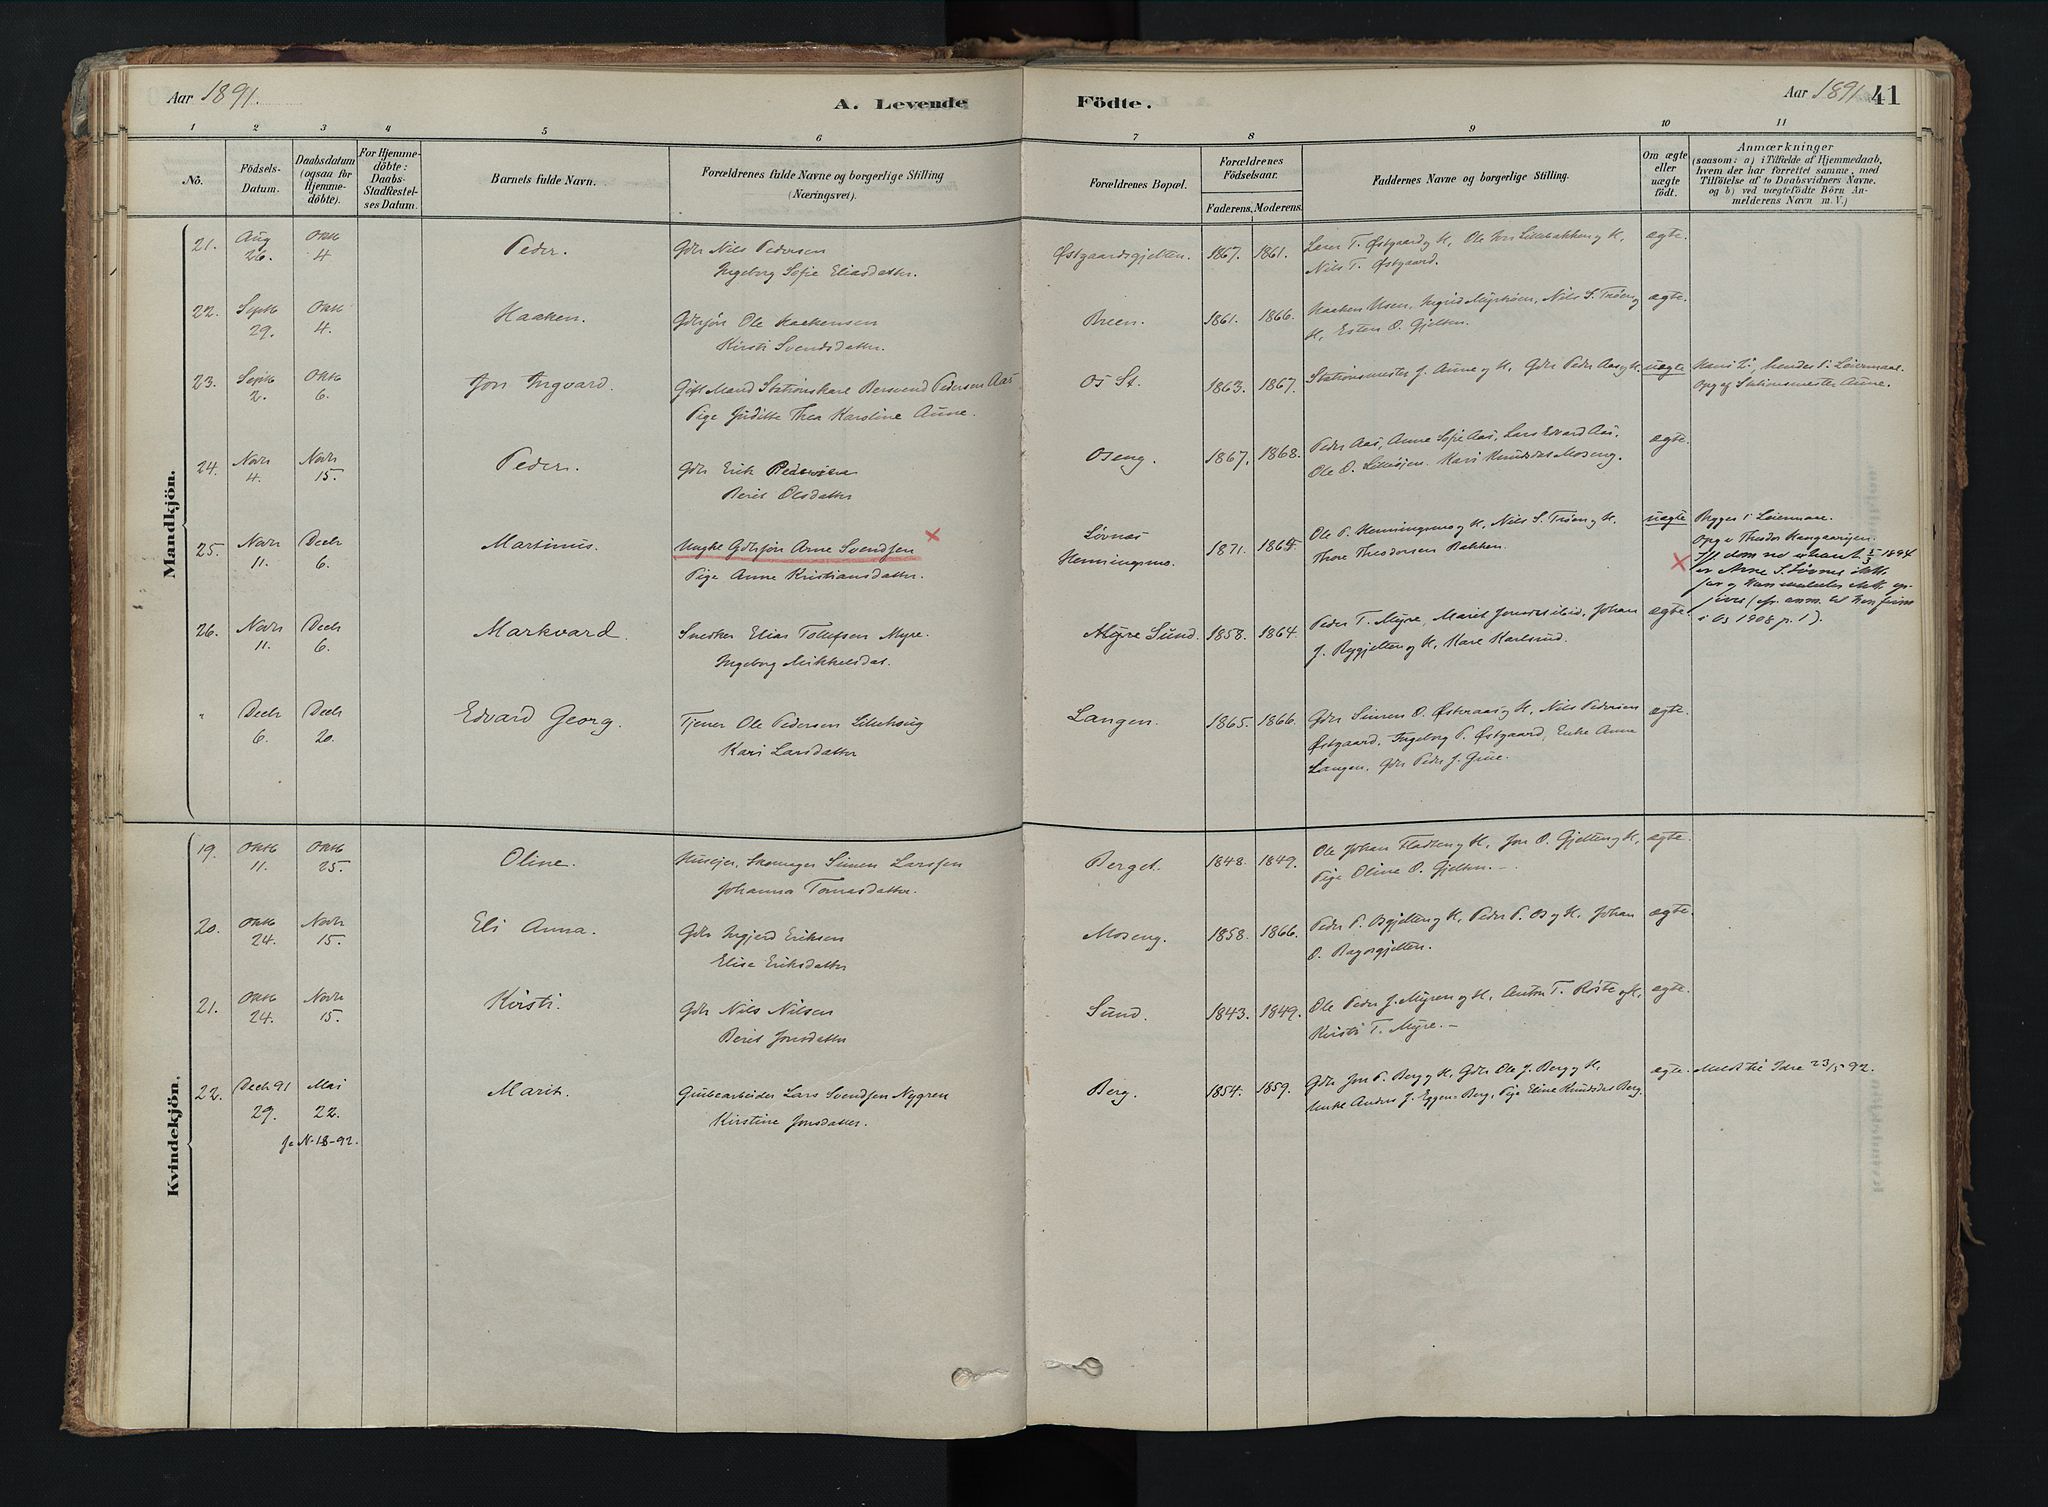 Aar 1891.
A. Levende
Födte.
Aar 1891
41
1 2 3 4 5 6 7 8 9 10 11
No.
Födsels-
Datum.
Daabsdatum
(ogsaa for
Hjemme-
döbte).
For Hjemme-
döbte:
Daabs-
Stadfæstel-
ses Datum.
Barnets fulde Navn.
Forældrenes fulde Navne og borgerlige Stilling
(Næringsvei).
Forældrenes Bopæl.
Forældrenes
Födselsaar.
Faderens. Moderens.
Faddernes Navne og borgerlige Stilling.
Om ægte
eller
uægte
födt.
Anmærkninger
(saasom: a) i Tilfælde af Hjemmedaab,
hvem der har forrettet samme, med
Tilföielse af to Daabsvidners Navne.
og b) ved uægtefödte Börn An-
melderens Navn m. V.)
Mandkjön.
21. Aug 26. Oktb 4 Peder. Gdr Nils Pedersen
Ingeborg Sofie Eliasdatter.
Østgaardsgjelten. 1867. 1861. T. Østgaard og H, Ole Jons Lillebakken og H,
Nils T. Østgaard.
ægte.
22. Septb 29. Oktb 4. Haaken. Gdrsøn Ole Haakensen
Kirsti Svendsdatter.
Breen. 1861. 1866. Haaken Ingrid Myrmoen, Nils S. Trøen og
H, Esten O. Gjelten.
ægte.
23. Septb 2. Oktb 6. Jon Ingvard. Gift Mand Stationskarl Bersvend Pedersen Aas
Pige Juditte Thea Karoline Aune.
Os St. 1863. 1867. Stationsmester J. Aune og H, Gdr Peder Aas og H. uægte
Hans 2., hendes 1. Leiermaal.
Opg af Stationsmester Aune.
24. Novbr 4. Novbr 15. Peder. Gdr Erik Pedersen
Berit Olsdatter
Oseng. 1867. 1868. Peder Aas, Anne Sofie Aas, Lars Edvard Aas.
Ole O. Lillesjøen. Kari Knudsdtr Moseng.
ægte.
25. Novbr 11. Decbr 6. Martinus. Ungkl Gdrsøn Arne Svendsen
Pige Anne Kristiansdatter.
Løvnæs
Henningsmo. 1871. 1864. Ole P. Henningsmo og H, Nils S. Trøen og H,
Thore Theodorsen Bakken.
uægte
Begges 1. Leiermaal.
Opg af Theodor
Iflg dom
er Arne S. Løvnes ikke
far og kan
i Os 1908 p. 1).
26. Novbr 11. Decbr 6. Markvard. Snedker Elias Tollefsen Myre.
Ingeborg Mikkelsdat.
Myre Sund. 1858. 1864. Peder T. Myre, Marit Johan
J. Nygjelten og H, Kare Karlsrud.
ægte.
" Decbr 6. Decbr 20. Edvard Georg. Tjener Ole Pedersen
Kari Larsdatter
Langen. 1865. 1866. Gdr Simen O. Østeraas og H, Nils Pedersen
Østgaard, Ingeborg P. Østgaard, Enke Anne
Langen, Gdr Peder J. Grue.
ægte.
Kvindekjön.
19. Oktb 11. Oktb 25. Oline. Husejer, Skomager Simen Larssen
Johanna Tomasdatter.
Berget. 1848. 1849. Ole Johan Fladten og H, Jon O. Gjelten og H,
Pige Oline O. Gjelten.—
ægte.
20. Oktb 24. Novbr 15. Eli Anna. Gdr Ingjerd Eriksen
Elise Eriksdatter
Moseng. 1858. 1866. Peder P. Osgjelten og H, Peder P. Os og H, Johan
O. Bagosgjelten.
ægte.
21. Oktb 24. Novbr 15. Kirsti. Gdr Nils Nilsen
Berit Jonsdatter
Sund. 1843. 1849. Ole Peder J. Myren og H, Anton T. Røste og H,
Kirsti T. Myre.—
ægte.
22. Decbr 91 29. Mai 22. Marit. Grubearbeider Lars Svendsen Nygren
Kirstine Jonsdatter.
Berg. 1854. 1859. Gdr Jon P. Berg og H, Gdr Ole J. Berg og H,
Ungkl Anders J. Eggen-Berg, Pige Eline Knudsdtr Berg.
ægte. Meldt til Idre 23/5 92.
Je N. 18-92.